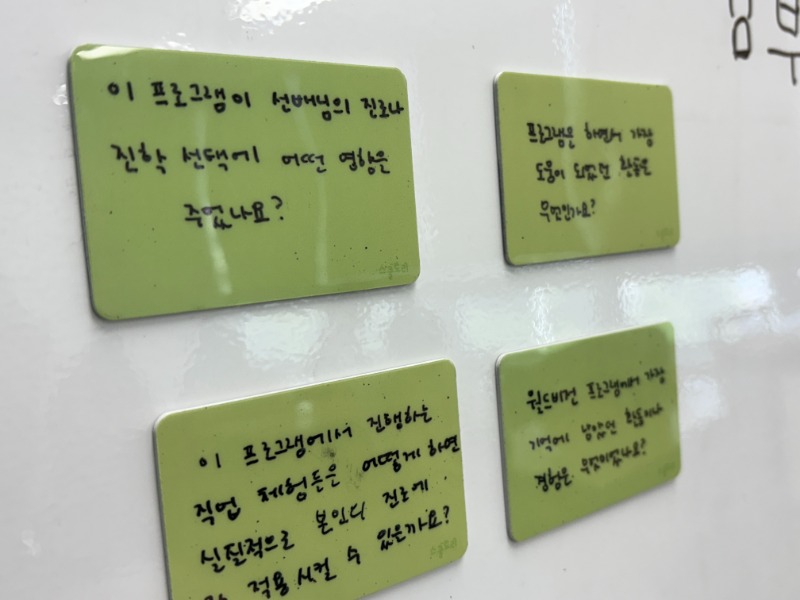 이 프로그램이 선배님의 진로나
진학 선택에 어떤 영향은
주었나요?
프로그램은 하면서 가장
도움이 되었던 활동은
무엇인가요?
이 프로그램에서 진행하는
직업 체험든은 어떻게 하면
실질적으로 본인의 진로에
적용시킬 수 있은까요?
월드비전 프로그램에서 가장
기억에 남았던 활동이나
경험은 무엇이었나요?